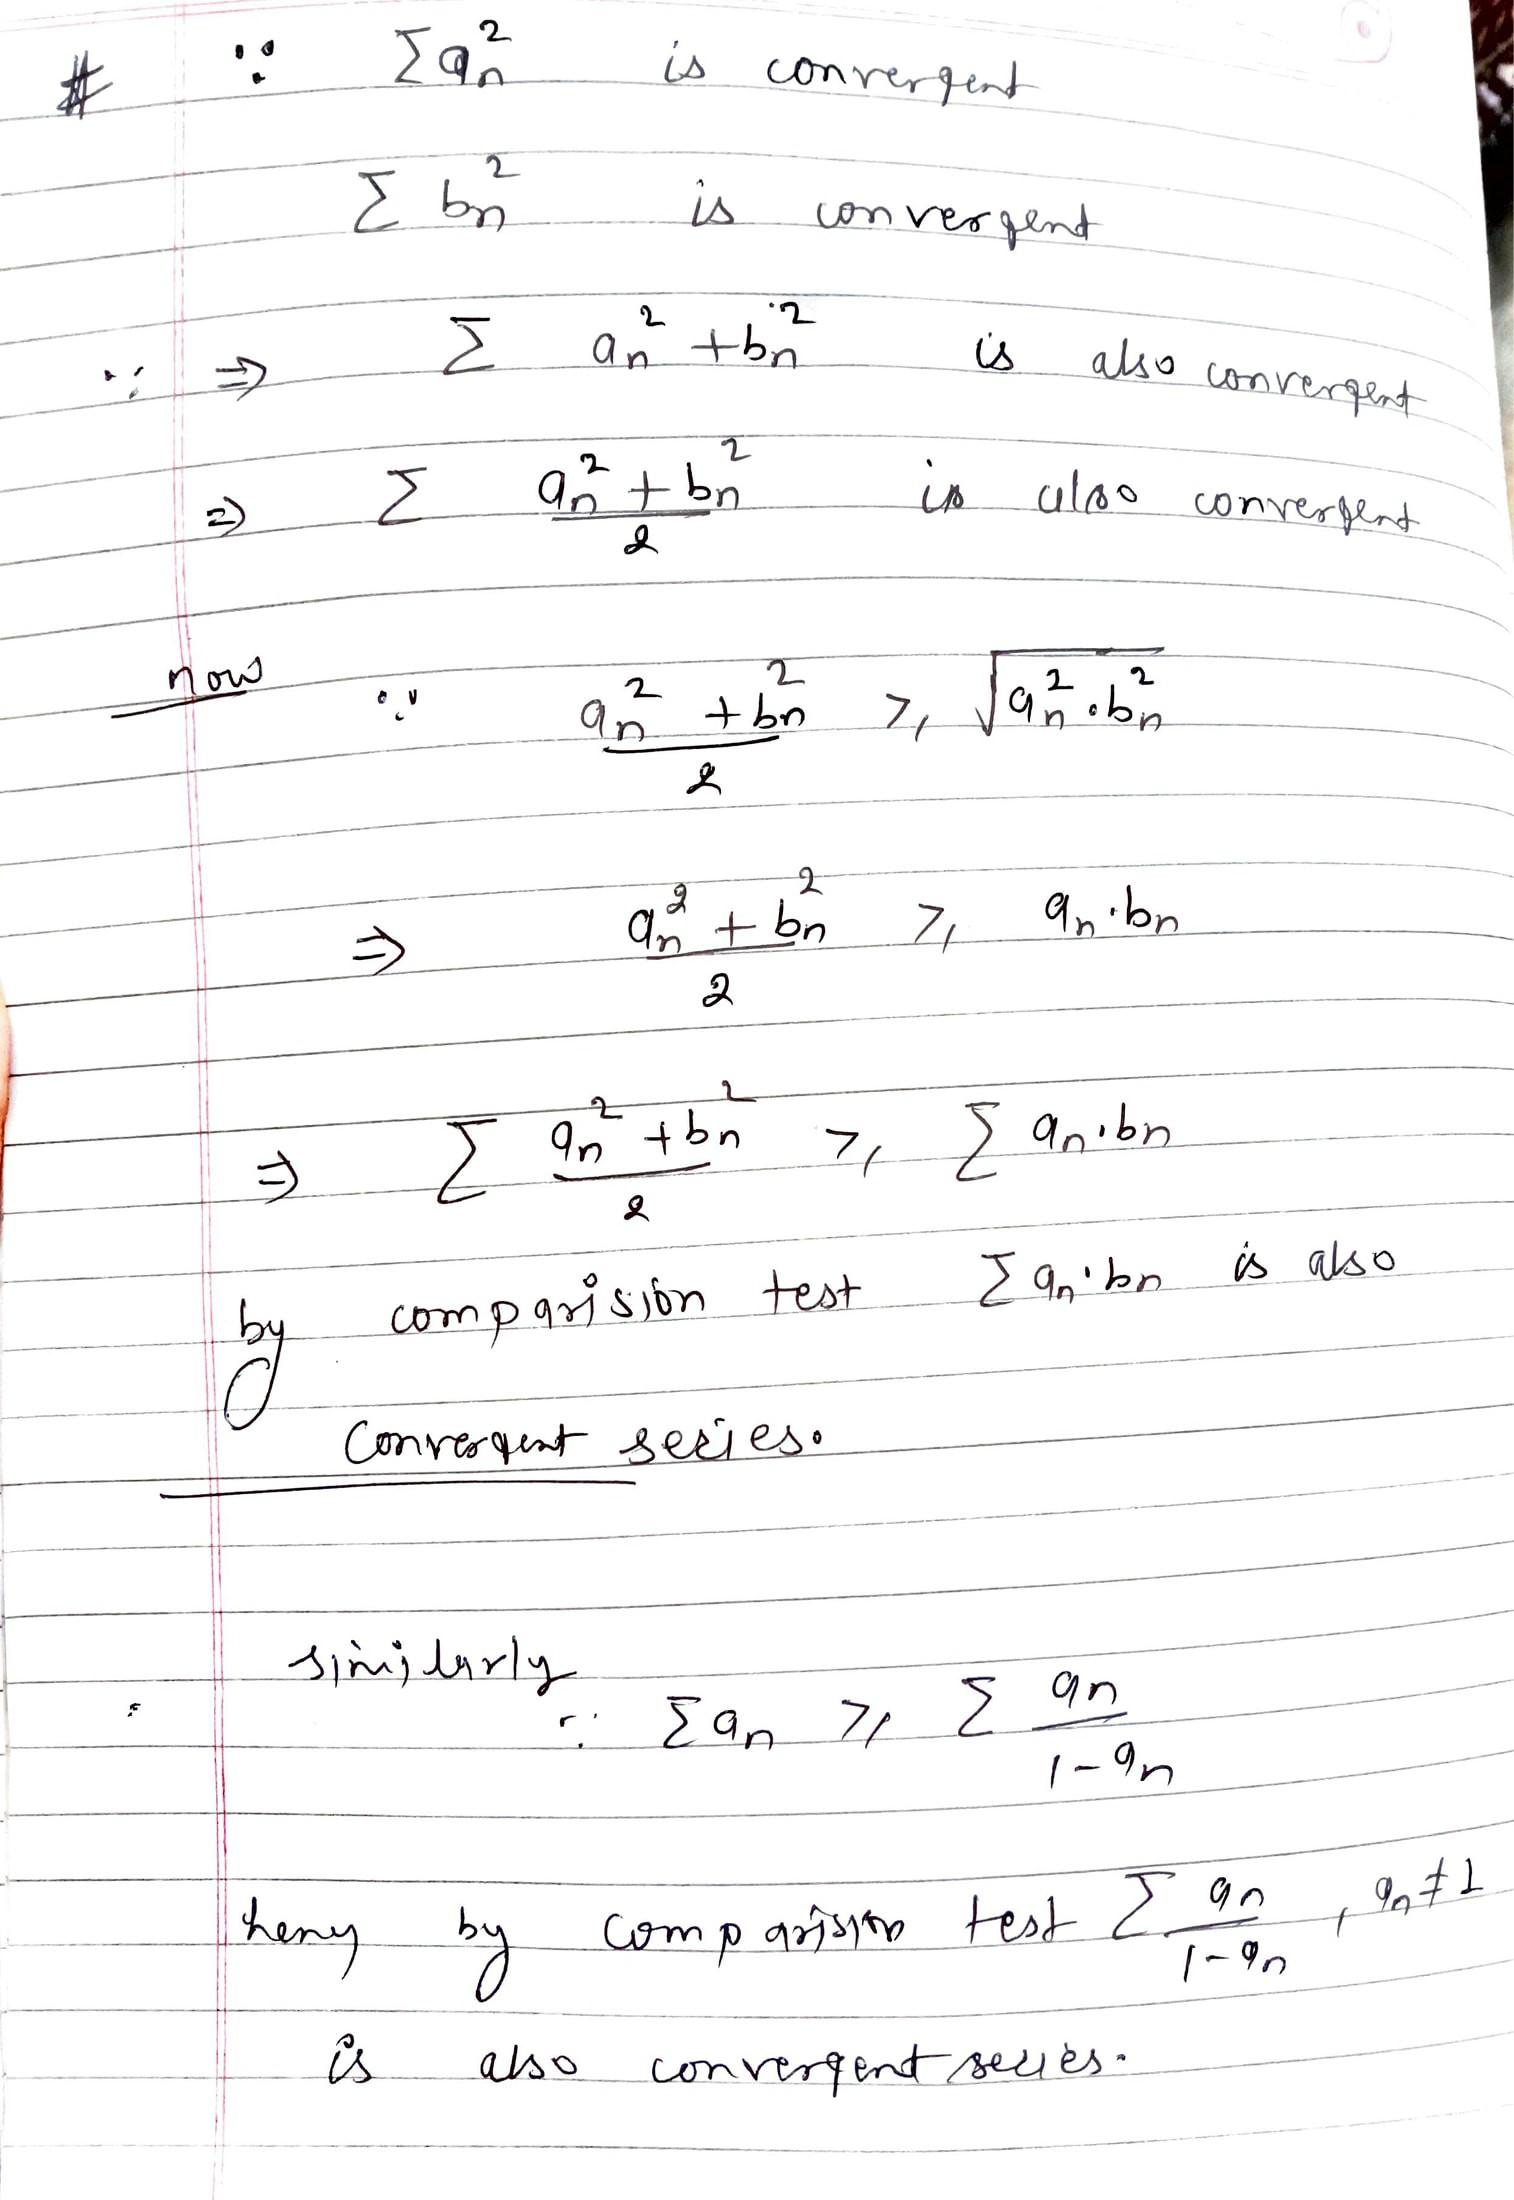 # ∵ Σ aₙ² is convergent
Σ bₙ² is convergent
∵ ⇒ Σ aₙ² + bₙ² is also convergent
⇒ Σ (aₙ² + bₙ²)/2 is also convergent
now ∵ (aₙ² + bₙ²)/2 ≥ √(aₙ² · bₙ²)
⇒ (aₙ² + bₙ²)/2 ≥ aₙ · bₙ
⇒ Σ (aₙ² + bₙ²)/2 ≥ Σ aₙ · bₙ
by comparision test Σ aₙ · bₙ is also
Convergent series.
similarly
∵ Σ aₙ ≥ Σ aₙ/(1 - aₙ)
by comparision test Σ aₙ/(1 - aₙ) , aₙ ≠ 1
is also convergent series.